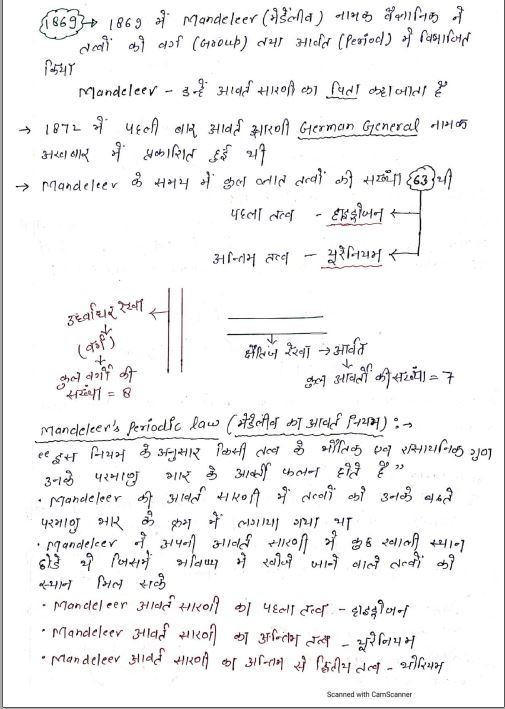 1869 → 1869 में Mandeleer (मेंडेलीव) नामक वैज्ञानिक ने
तत्वों को वर्ग (Group) तथा आवर्त (Period) में विभाजित
किया
Mandeleer - इन्हें आवर्त सारणी का पिता कहा जाता है
→ 1872 में पहली बार आवर्त सारणी German General नामक
अखबार में प्रकाशित हुई थी
→ Mandeleer के समय में कुल ज्ञात तत्वों की संख्या 63 थी
पहला तत्व - हाइड्रोजन
अन्तिम तत्व - यूरेनियम
उर्ध्वाधर रेखा
(वर्ग)
कुल वर्गों की
संख्या = 8
क्षैतिज रेखा → आवर्त
कुल आवर्तों की संख्या = 7
Mandeleer's Periodic law (मेंडेलीव का आवर्त नियम) : →
"इस नियम के अनुसार किसी तत्व के भौतिक एवं रासायनिक गुण
उनके परमाणु भार के आवर्ती फलन होते हैं"
• Mandeleer की आवर्त सारणी में तत्वों को उनके बढते
परमाणु भार के क्रम में लगाया गया था
• Mandeleer ने अपनी आवर्त सारणी में कुछ खाली स्थान
छोडे थे जिसमें भविष्य में खोजे जाने वाले तत्वों को
स्थान मिल सके
• Mandeleer आवर्त सारणी का पहला तत्व - हाइड्रोजन
• Mandeleer आवर्त सारणी का अन्तिम तत्व - यूरेनियम
• Mandeleer आवर्त सारणी का अन्तिम से द्वितीय तत्व - थोरियम
Scanned with CamScanner